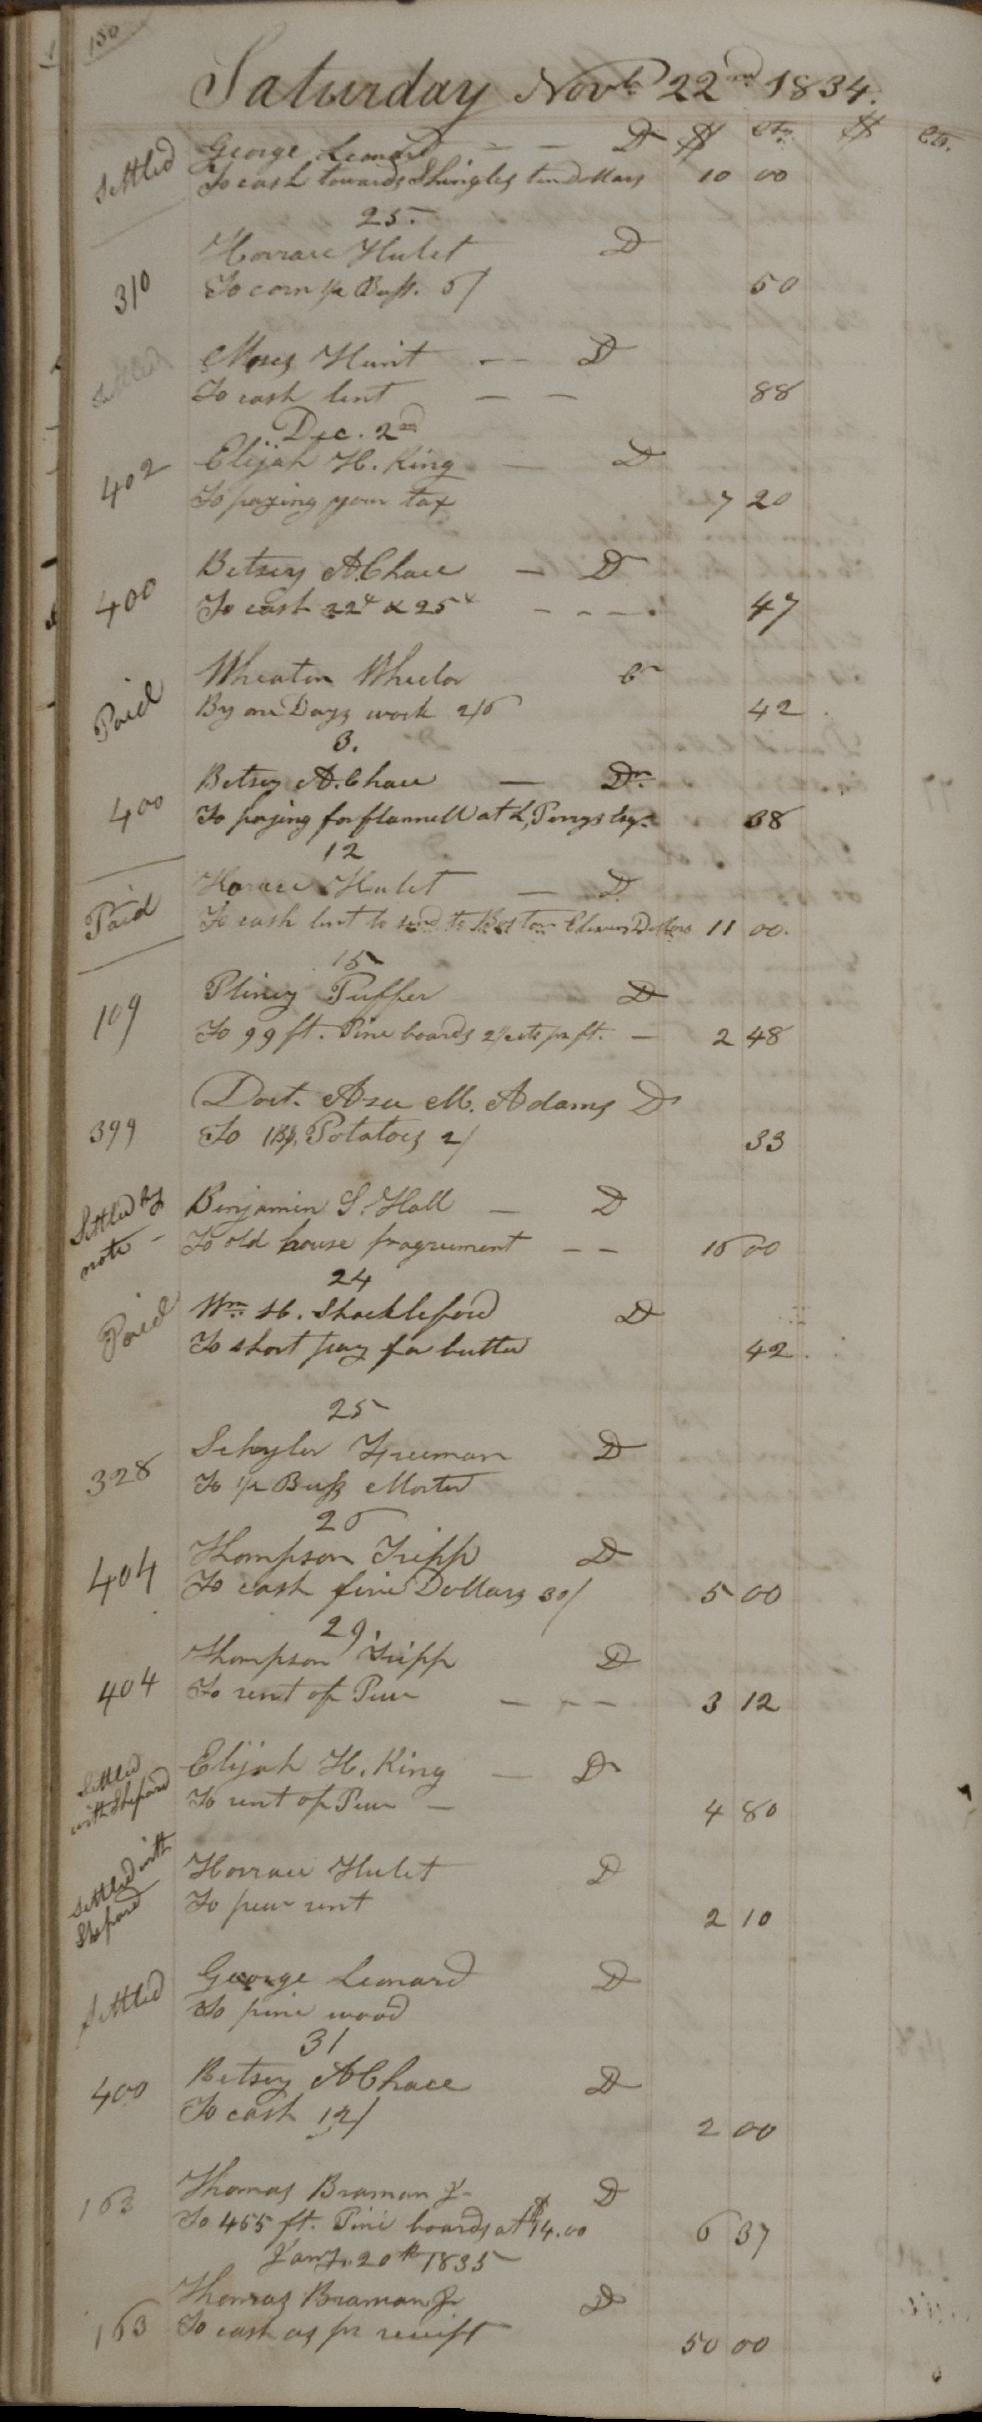 150
Saturday Novb 22nd 1834.
$ cts. $ cts.
Settled George Leonard — — D
To cash towards Shingles ten Dollars 10 00
25.
310 Horrace Hulet D
To corn 1/2 Bush. 6/ 50
Settled Moses Hunt - — D
To cash lent — — 88
Dec. 2nd
402 Elijah H. King — D
To paying your tax 7 20
400 Betsey A. Chace — D
To cash 22d & 25d - - - - 47
Paid Wheaton Wheelor Cr
By one Days work 2/6 42
3.
400 Betsey A. Chace — Dr.
To paying for flannell at L, Perrys Esq. 38
12
Paid Horace Hulet — D
To cash lent to send to Boston Eleven Dollars 11 00.
15
109 Pliney Puffer D
To 99 ft. Pine boards 2 1/2 cts pr ft. — 2 48
399 Doct. Asa M. Adams Dr
To 1 B. Potatoes 2/ 33
Settled by note - Benjamin S. Hall — D
To old house pr agreement — — 15 00
24
Paid Wm. H. Shackleford D
To short pay for butter 42
25
328 Schyler Freeman D
To 1/2 Bush Morter
26
404 Thompson Tripp D
To cash five Dollars 30/ 5 00
29
404 Thompson Tripp D
To rent of Pew — - — 3 12
Settled with Shepard Elijah H. King — D
To rent of Pew — 4 80
Settled with Shepard Horrace Hulet D
To pew rent 2 10
Settled George Leonard D
To pine wood
31
400 Betsey A Chace D
To cash 12/ 2 00
163 Thomas Braman Jr D
To 455 ft. Pine boards at $14.00 6 37
Jany. 20th 1835
163 Thomas Braman Jr D
To cash as pr receipt 50 00